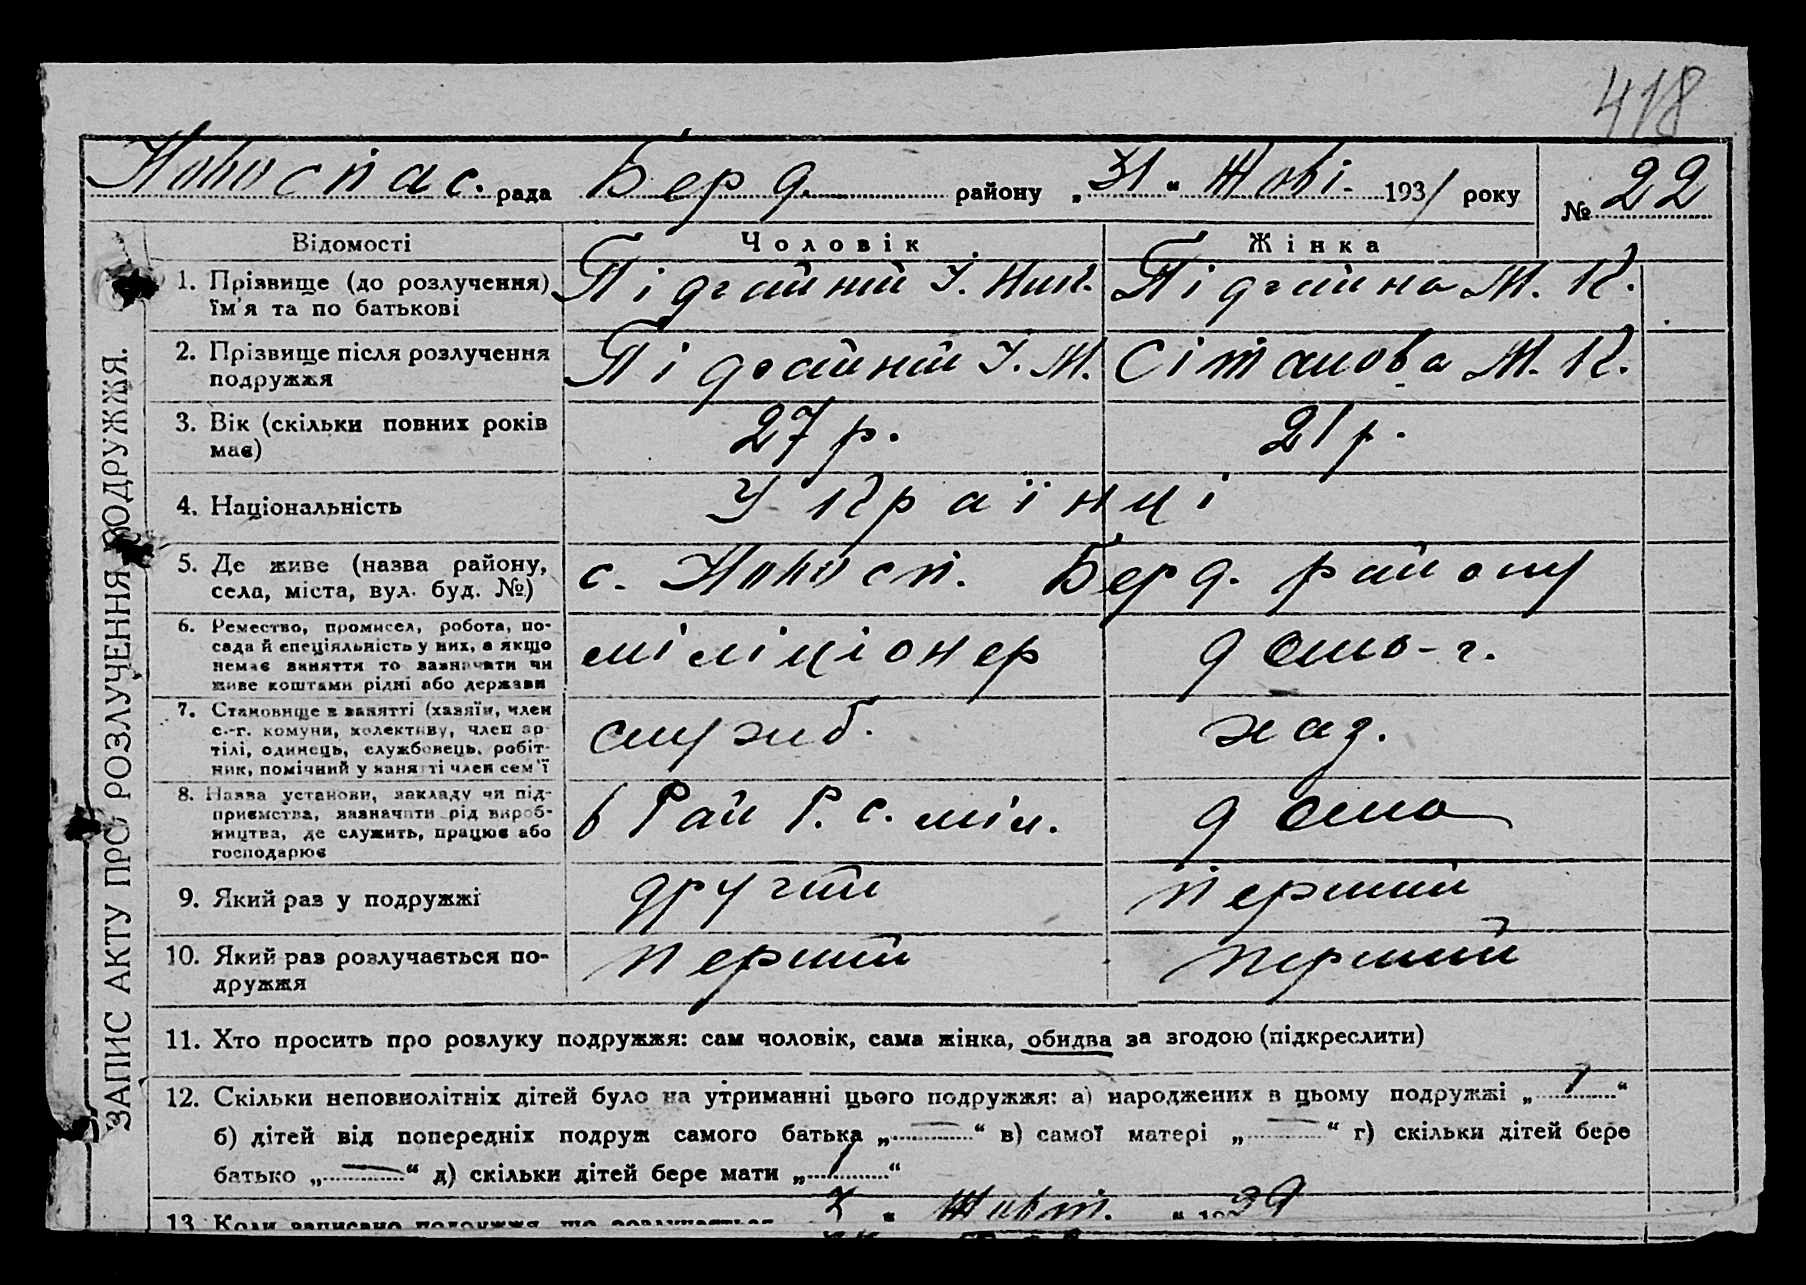 418
Новоспас. рада Берд. району „31“ Жовт. 1931 року № 22
Відомості Чоловік Жінка
1. Прізвище (до розлучення) їм'я та по батькові Підгайний І. Мик. Підгайна М. К.
2. Прізвище після розлучення подружжя Підгайний І. М. Сітанова М. К.
3. Вік (скільки повних років має) 27 р. 21 р.
4. Національність Українці
5. Де живе (назва району, села, міста, вул. буд. №) с. Новосп. Берд. району
6. Ремество, промисел, робота, посада й спеціяльність у них, а якщо немає заняття то зазначити чи живе коштами рідні або держави міліціонер дом-г.
7. Становище в занятті (хазяїн, член с.-г. комуни, колективу, член артілі, одинець, службовець, робітник, помічний у занятті член сем'ї служб. хаз.
8. Назва установи, закладу чи підприємства, зазначити рід виробництва, де служить, працює або господарює в Рай Р. с. міл. дома
9. Який раз у подружжі другий перший
10. Який раз розлучається подружжя перший перший
11. Хто просить про розлуку подружжя: сам чоловік, сама жінка, обидва за згодою (підкреслити)
12. Скільки неповнолітніх дітей було на утриманні цього подружжя: а) народжених в цьому подружжі „1“
б) дітей від попередніх подруж самого батька „—“ в) самої матері „—“ г) скільки дітей бере
батько „—“ д) скільки дітей бере мати „1“
13. Коли записано подружжя, що розлучається 7 „ Жовт. “
ЗАПИС АКТУ ПРО РОЗЛУЧЕННЯ ПОДРУЖЖЯ.